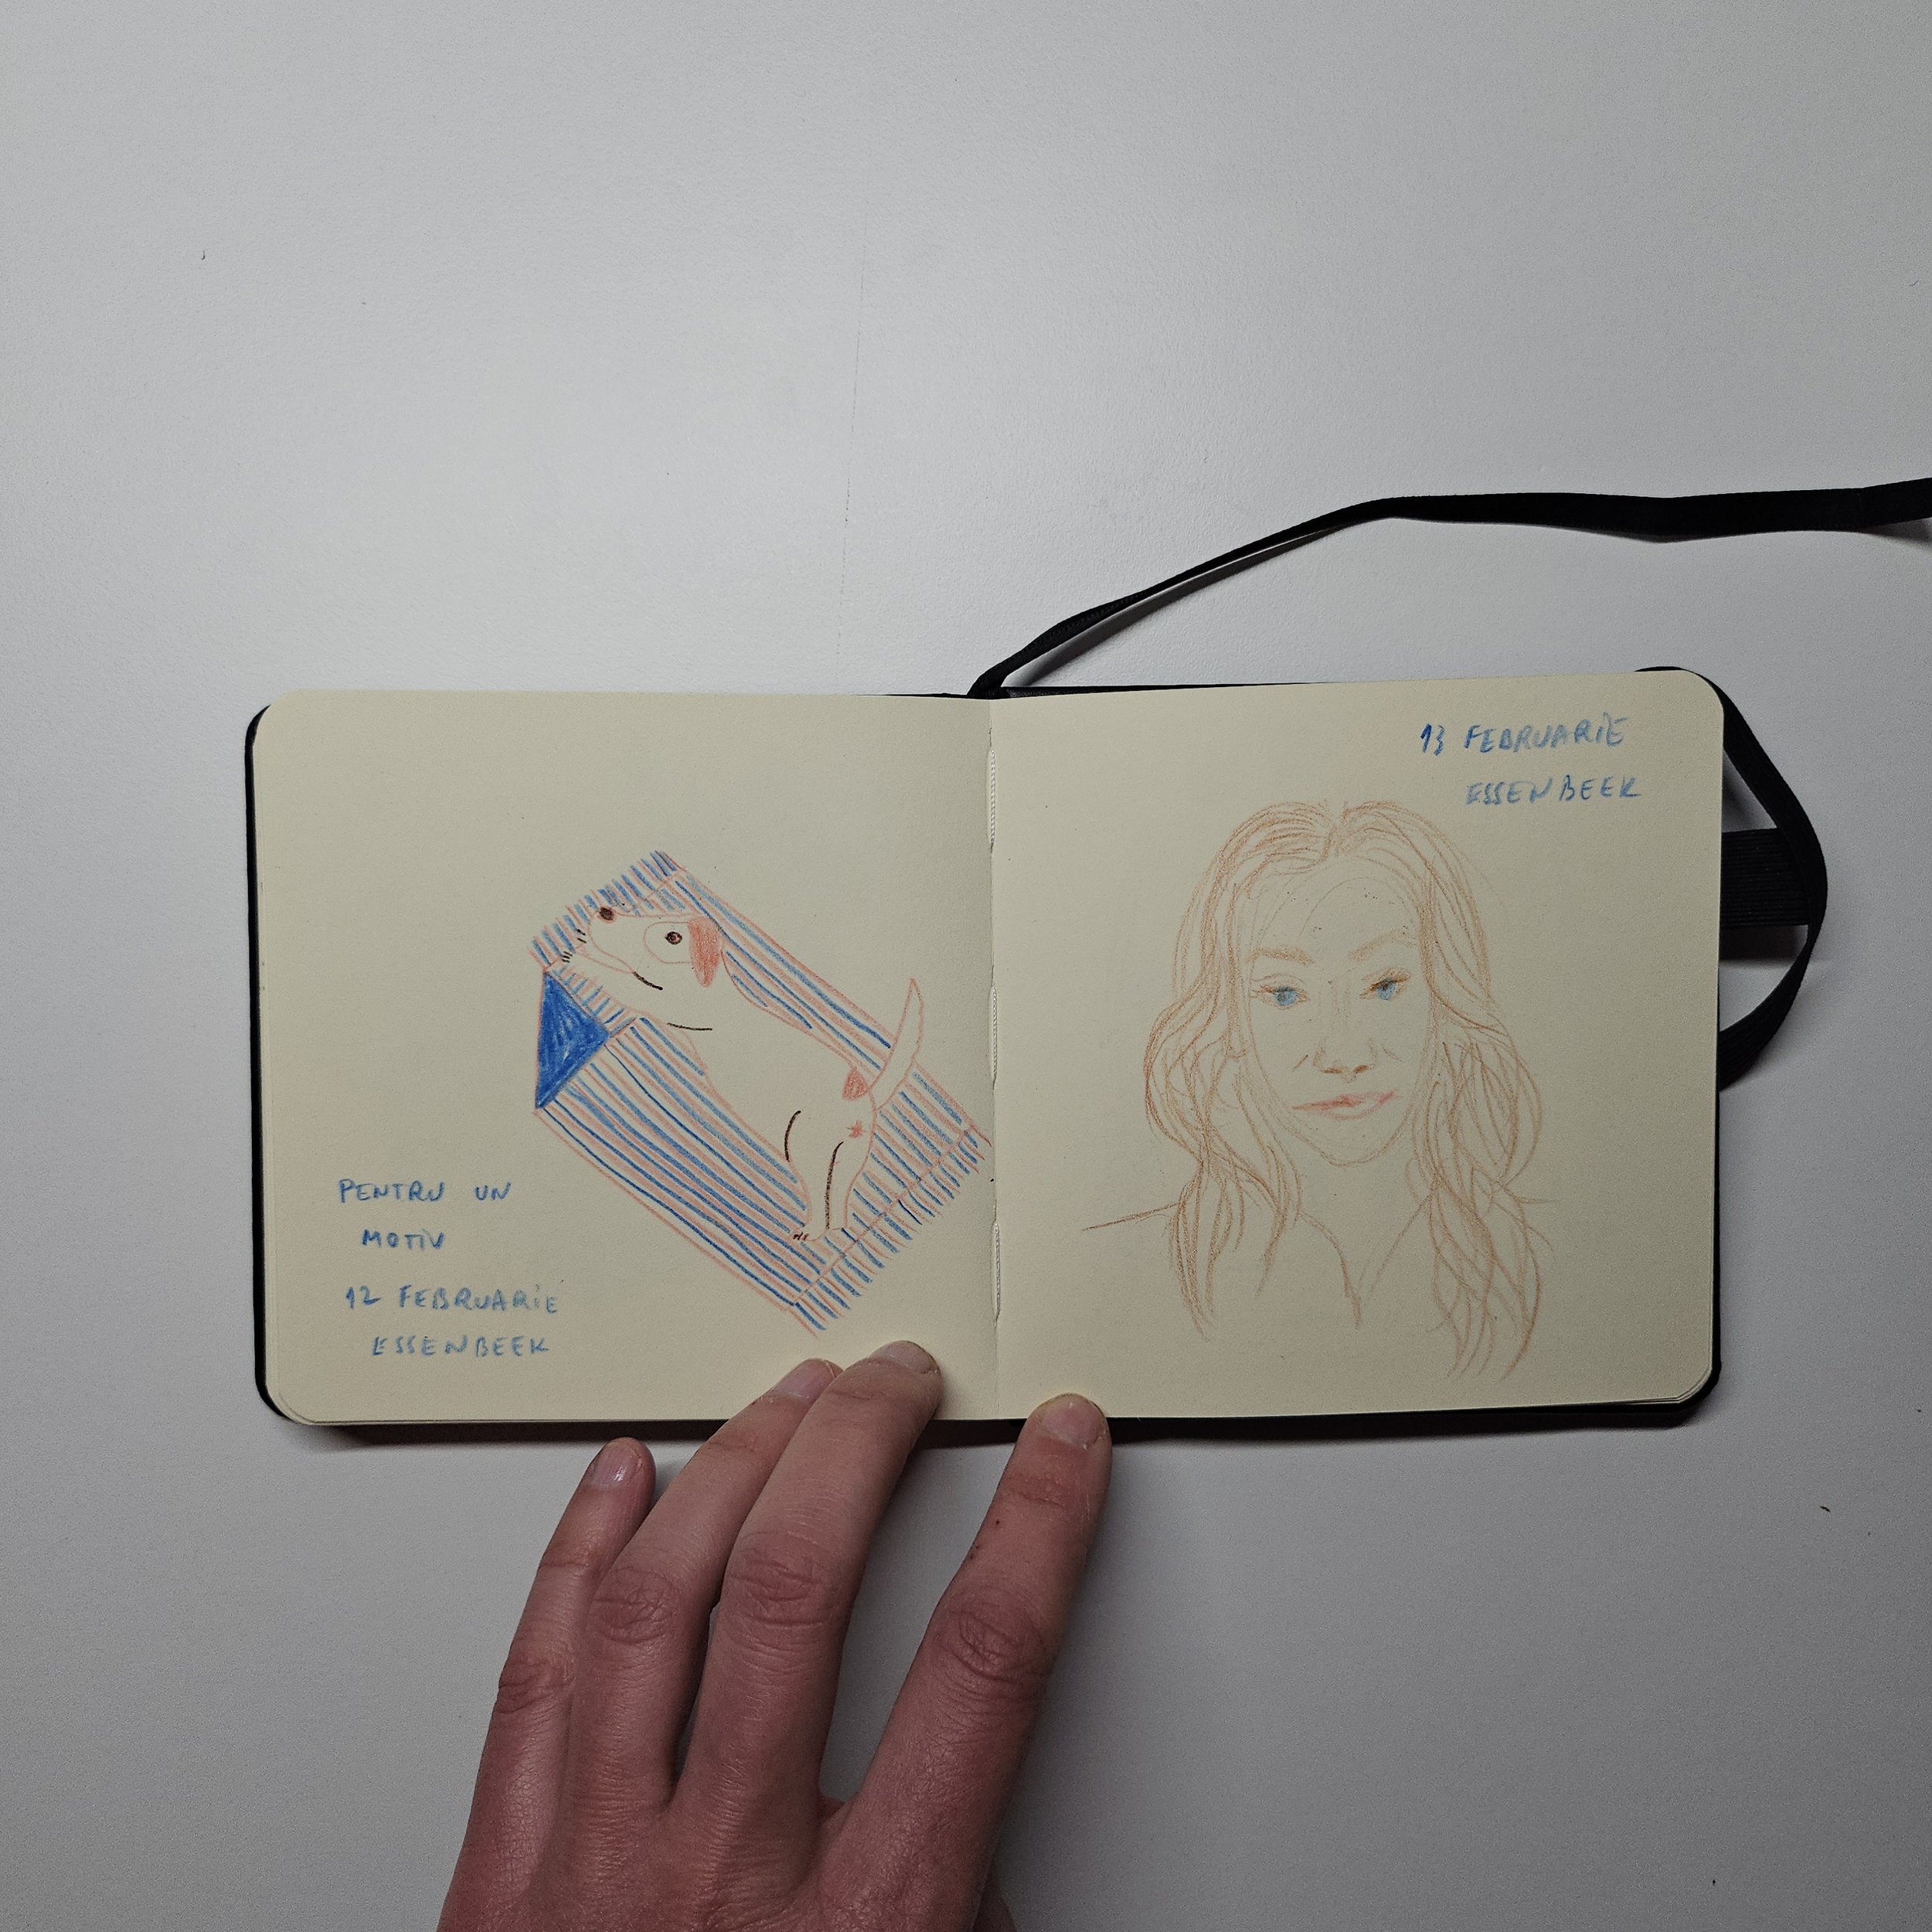 PENTRU UN
MOTIV
12 FEBRUARIE
ESSENBEEK
13 FEBRUARIE
ESSENBEEK